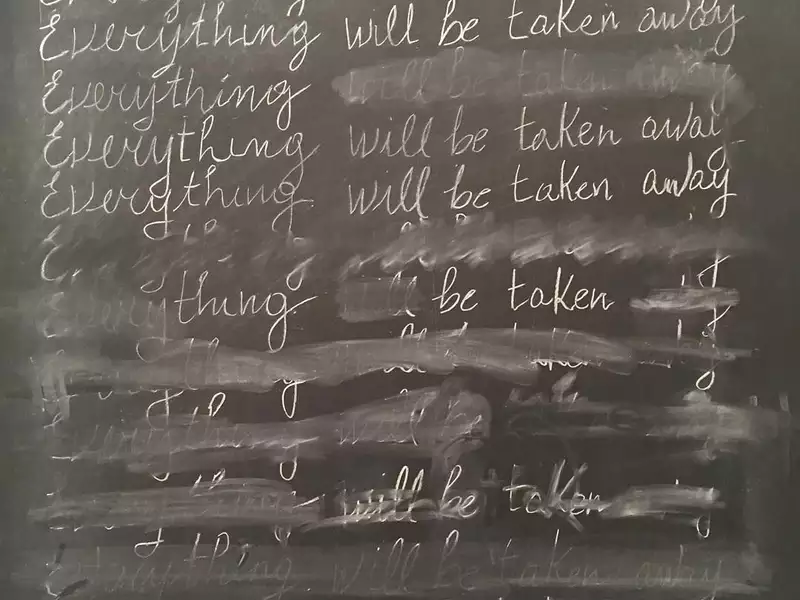 Everything will be taken away
Everything will be taken away
Everything will be taken away
Everything will be taken away
Everything be taken
Everything will be
will be taken
Everything will be taken away